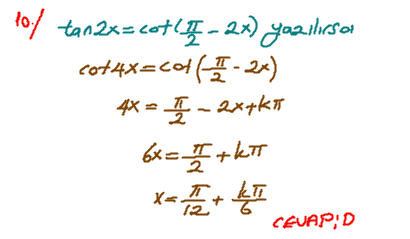 10./ tan2x=cot(π/2 - 2x) yazılırsa
cot4x=cot(π/2 - 2x)
4x = π/2 - 2x+kπ
6x= π/2 + kπ
x= π/12 + kπ/6
CEVAP:D